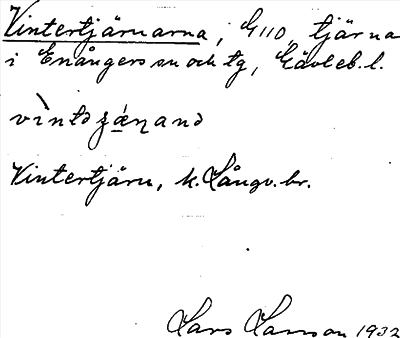 Vintertjärnarna, G110, tjärna
i Enångers sn och tg, Gävleb. l.
Vintertjärn, k. Långv. br.
Lars Larsson 1932